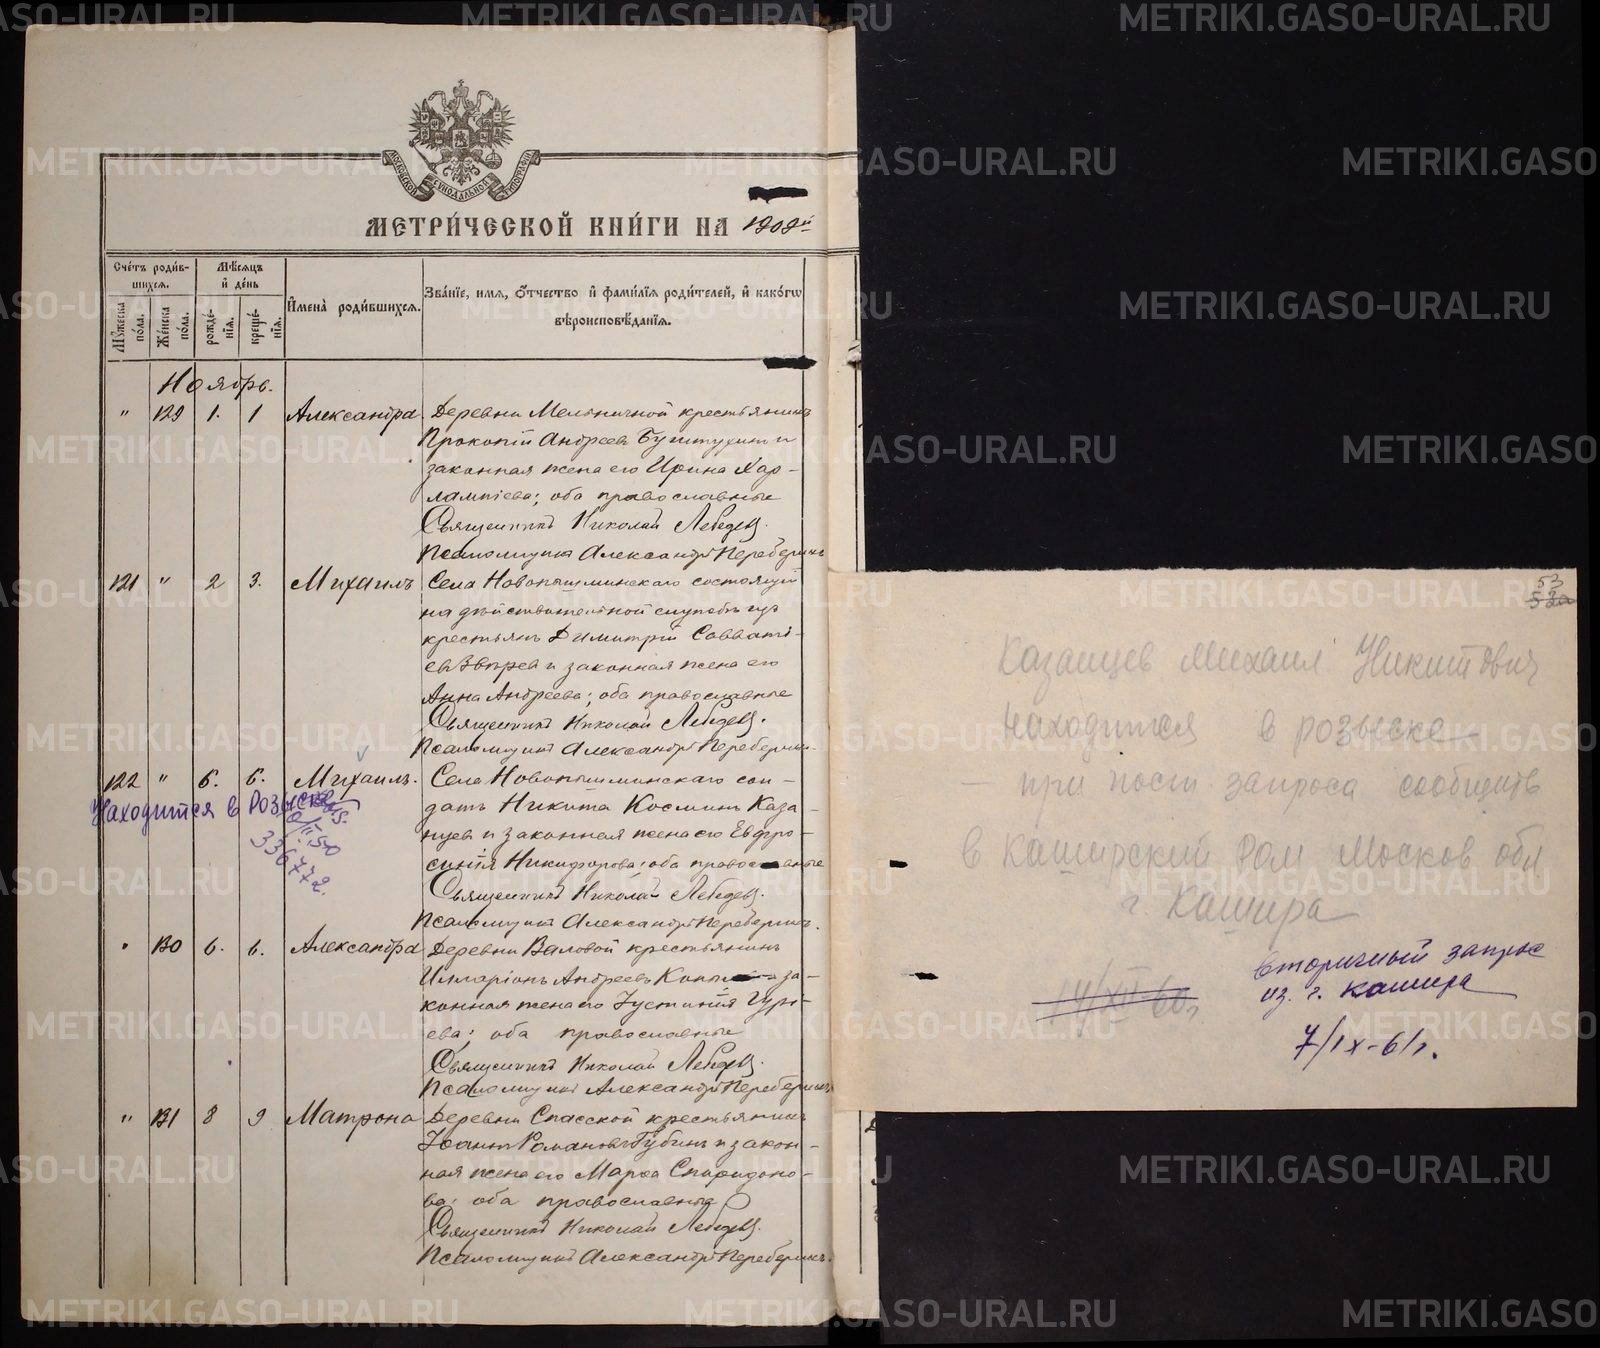 МОСКОВСКОЙ СѴНОДАЛЬНОЙ ТИПОГРАФІИ
МЕТРИ́ЧЕСКОЙ КНИ́ГИ НА 1909й
Сче́тъ роди́в-
шихся.
Мѣ́сяцъ
и҆ де́нь
Мꙋ́жеска
по́ла.
Же́нска
по́ла.
рожде́-
нїѧ.
креще́-
нїѧ.
И҆мена̀ роди́вшихся.
Зва́нїе, имѧ, ѻ҆́тчество и҆ фами́лїѧ роди́телей, и҆ како́гѡ
вѣроисповѣ́данїѧ.
Ноябрь.
" 129 1. 1 Александра. Деревни Мельничной крестьянинъ
Прокопій Андреевъ и
законная жена его Ирина Хар-
лампіева; оба православные
Священникъ Николай Лебедевъ.
Псаломщикъ Александръ Переберинъ
121 " 2 3. Михаилъ Села Новопышминскаго состоящій
на дѣйствительной службѣ изъ
крестьянъ Димитрій Савваті-
евъ Звѣревъ и законная жена его
Анна Андреева; оба православные
Священникъ Николай Лебедевъ.
Псаломщикъ Александръ Переберин.
122 " 6. 6. Михаилъ. Села Новопышминскаго сол-
датъ Никита Косминъ Каза-
нцевъ и законная жена его Евфро-
синія Никифорова; оба православные
Священникъ Николай Лебедевъ.
Псаломщикъ Александръ Переберинъ.
Находится в розыске
336772.
" 130 6. 6. Александра Деревни Валовой крестьянинъ
Илларіонъ Андреевъ и за-
конная жена его Іустинія Гурь-
ева; оба православные
Священникъ Николай Лебедевъ.
Псаломщикъ Александръ Переберинъ.
" 131 8 9 Матрона Деревни Спасской крестьянинъ
Іоаннъ Романовъ Губинъ и закон-
ная жена его Марѳа Спиридоно-
ва; оба православные
Священникъ Николай Лебедевъ.
Псаломщикъ Александръ Переберинъ.
53
52а
Казанцев Михаил Никитович
находится в розыске —
— при пост запроса сообщить
в Каширский РОМ Москов обл
г. Кашира
14/XII-60г
Вторичный запрос
из. г. Кашира
7/IX-61г.
METRIKI.GASO-URAL.RU